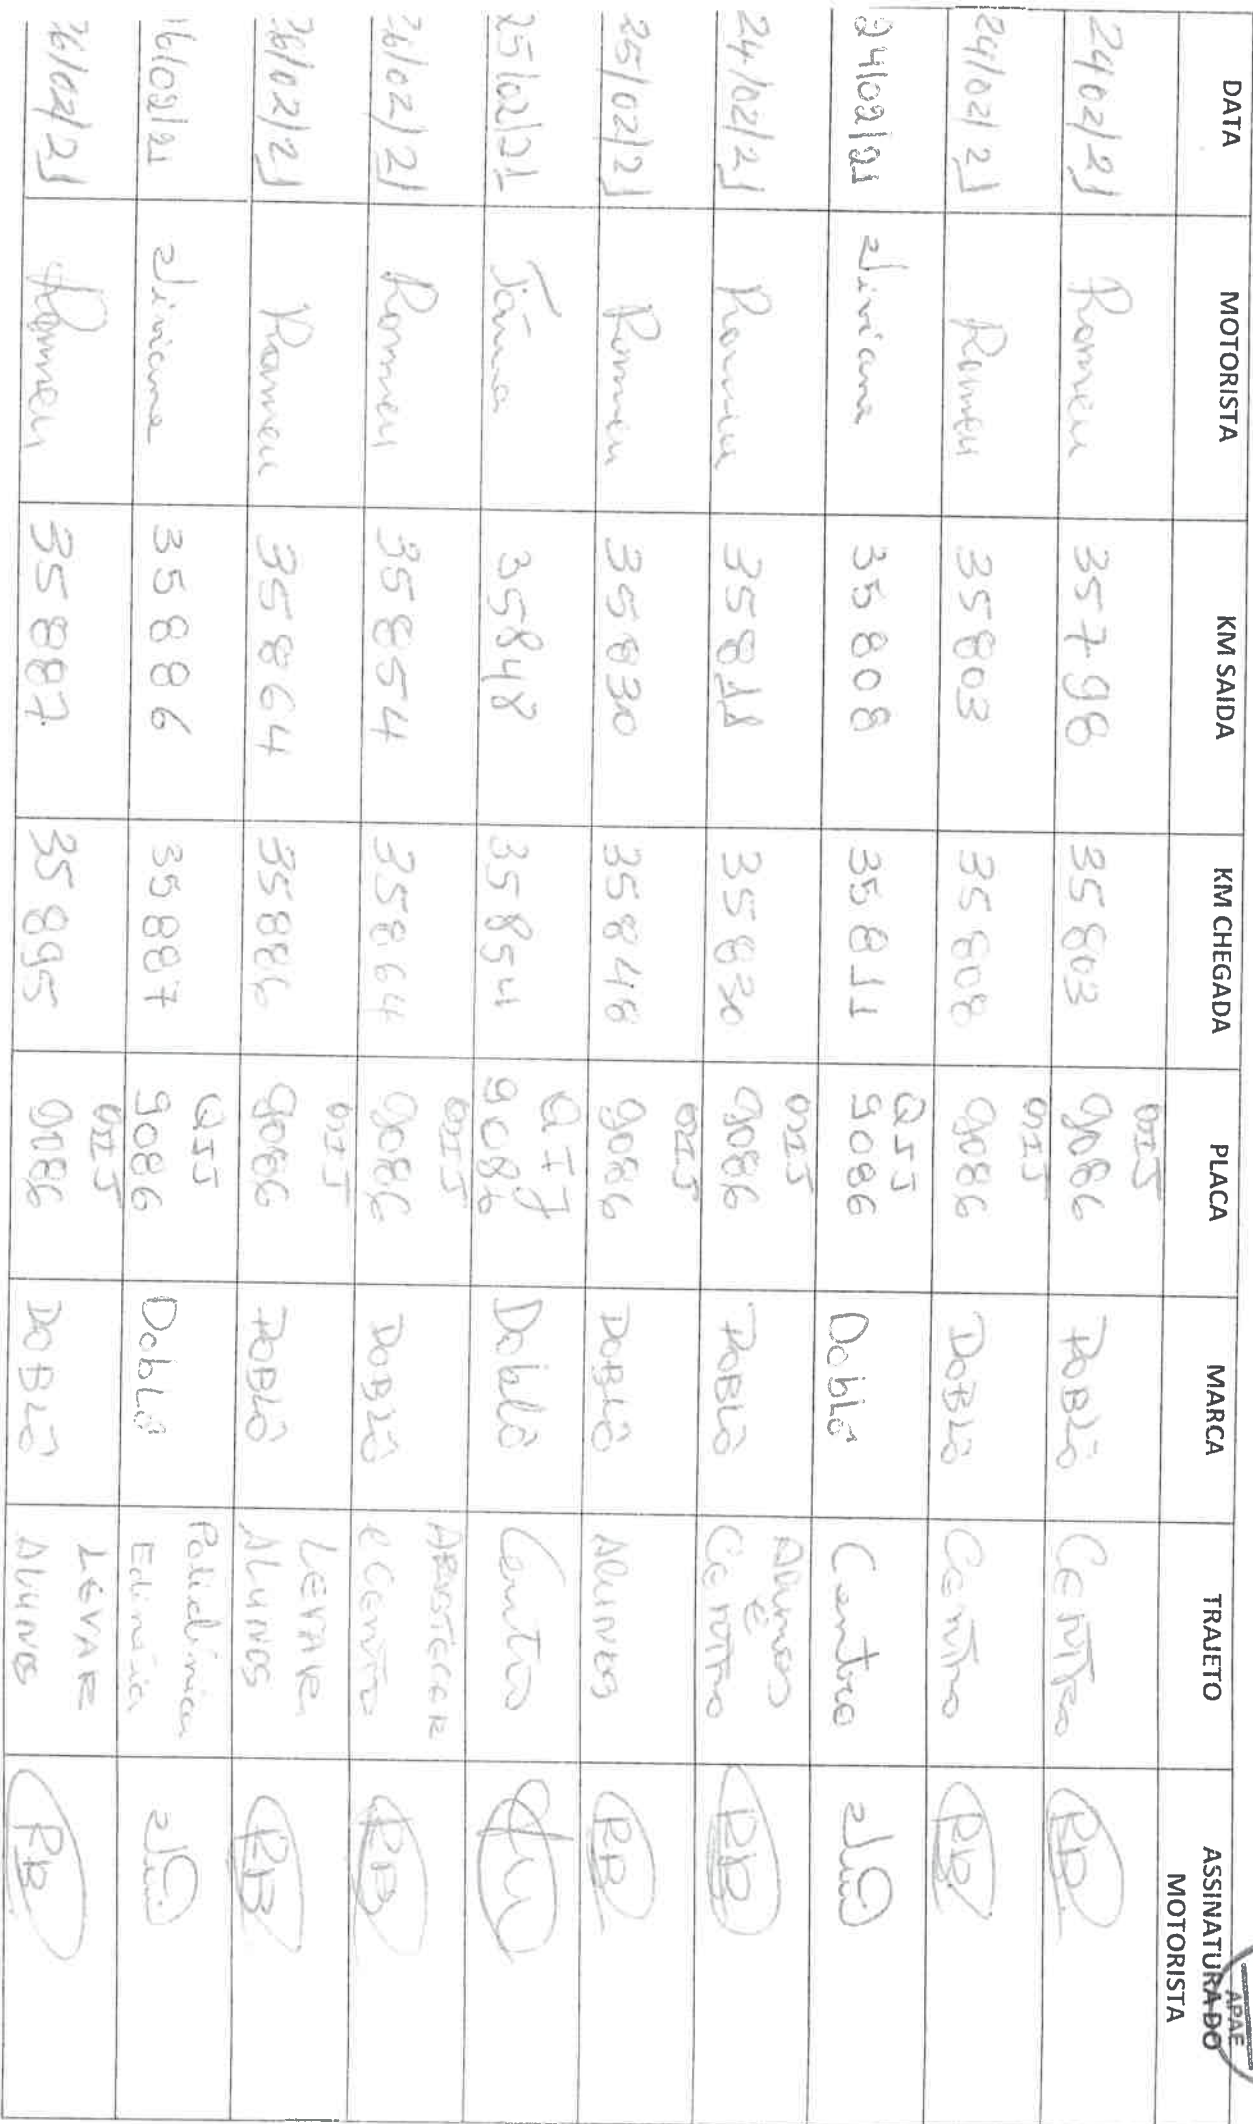 APAE
DATA MOTORISTA KM SAIDA KM CHEGADA PLACA MARCA TRAJETO ASSINATURA DO MOTORISTA
2402/21 Romeu 35798 35803 QIJ 9086 DOBLÔ CENTRO RB
24/02/21 Romeu 35803 35808 QIJ 9086 DOBLÔ CENTRO RB
24/02/21 Viviane 35808 35811 QIJ 9086 Doblô Centro
24/02/21 Romeu 35811 35830 QIJ 9086 DOBLÔ Alunos E CENTRO RB
25/02/21 Romeu 35830 35848 QIJ 9086 DOBLÔ ALUNOS RB
25/02/21 35848 35854 QIJ 9086 Doblô Centro
26/02/21 Romeu 35854 35864 QIJ 9086 DOBLÔ ABASTECER e CENTRO RB
26/02/21 Romeu 35864 35886 QIJ 9086 DOBLÔ LEVAR ALUNOS RB
16/02/21 Viviane 35886 35887 QIJ 9086 Doblô Policlinica
26/02/21 Romeu 35887 35895 QIJ 9086 DOBLÔ LEVAR ALUNOS RB